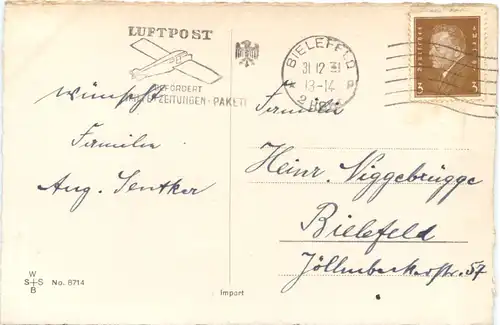 LUFTPOST
BEFÖRDERT
ZEITUNGEN · PAKETE
BIELEFELD
31 12 31
13-14
2
Deutsches Reich
3 3
wünscht
Familie
Aug. Sentker
Familie
Heinr. Niggebrügge
Bielefeld
Jöllenbeckerstr. 57
W
S+S No. 8714
B
Import